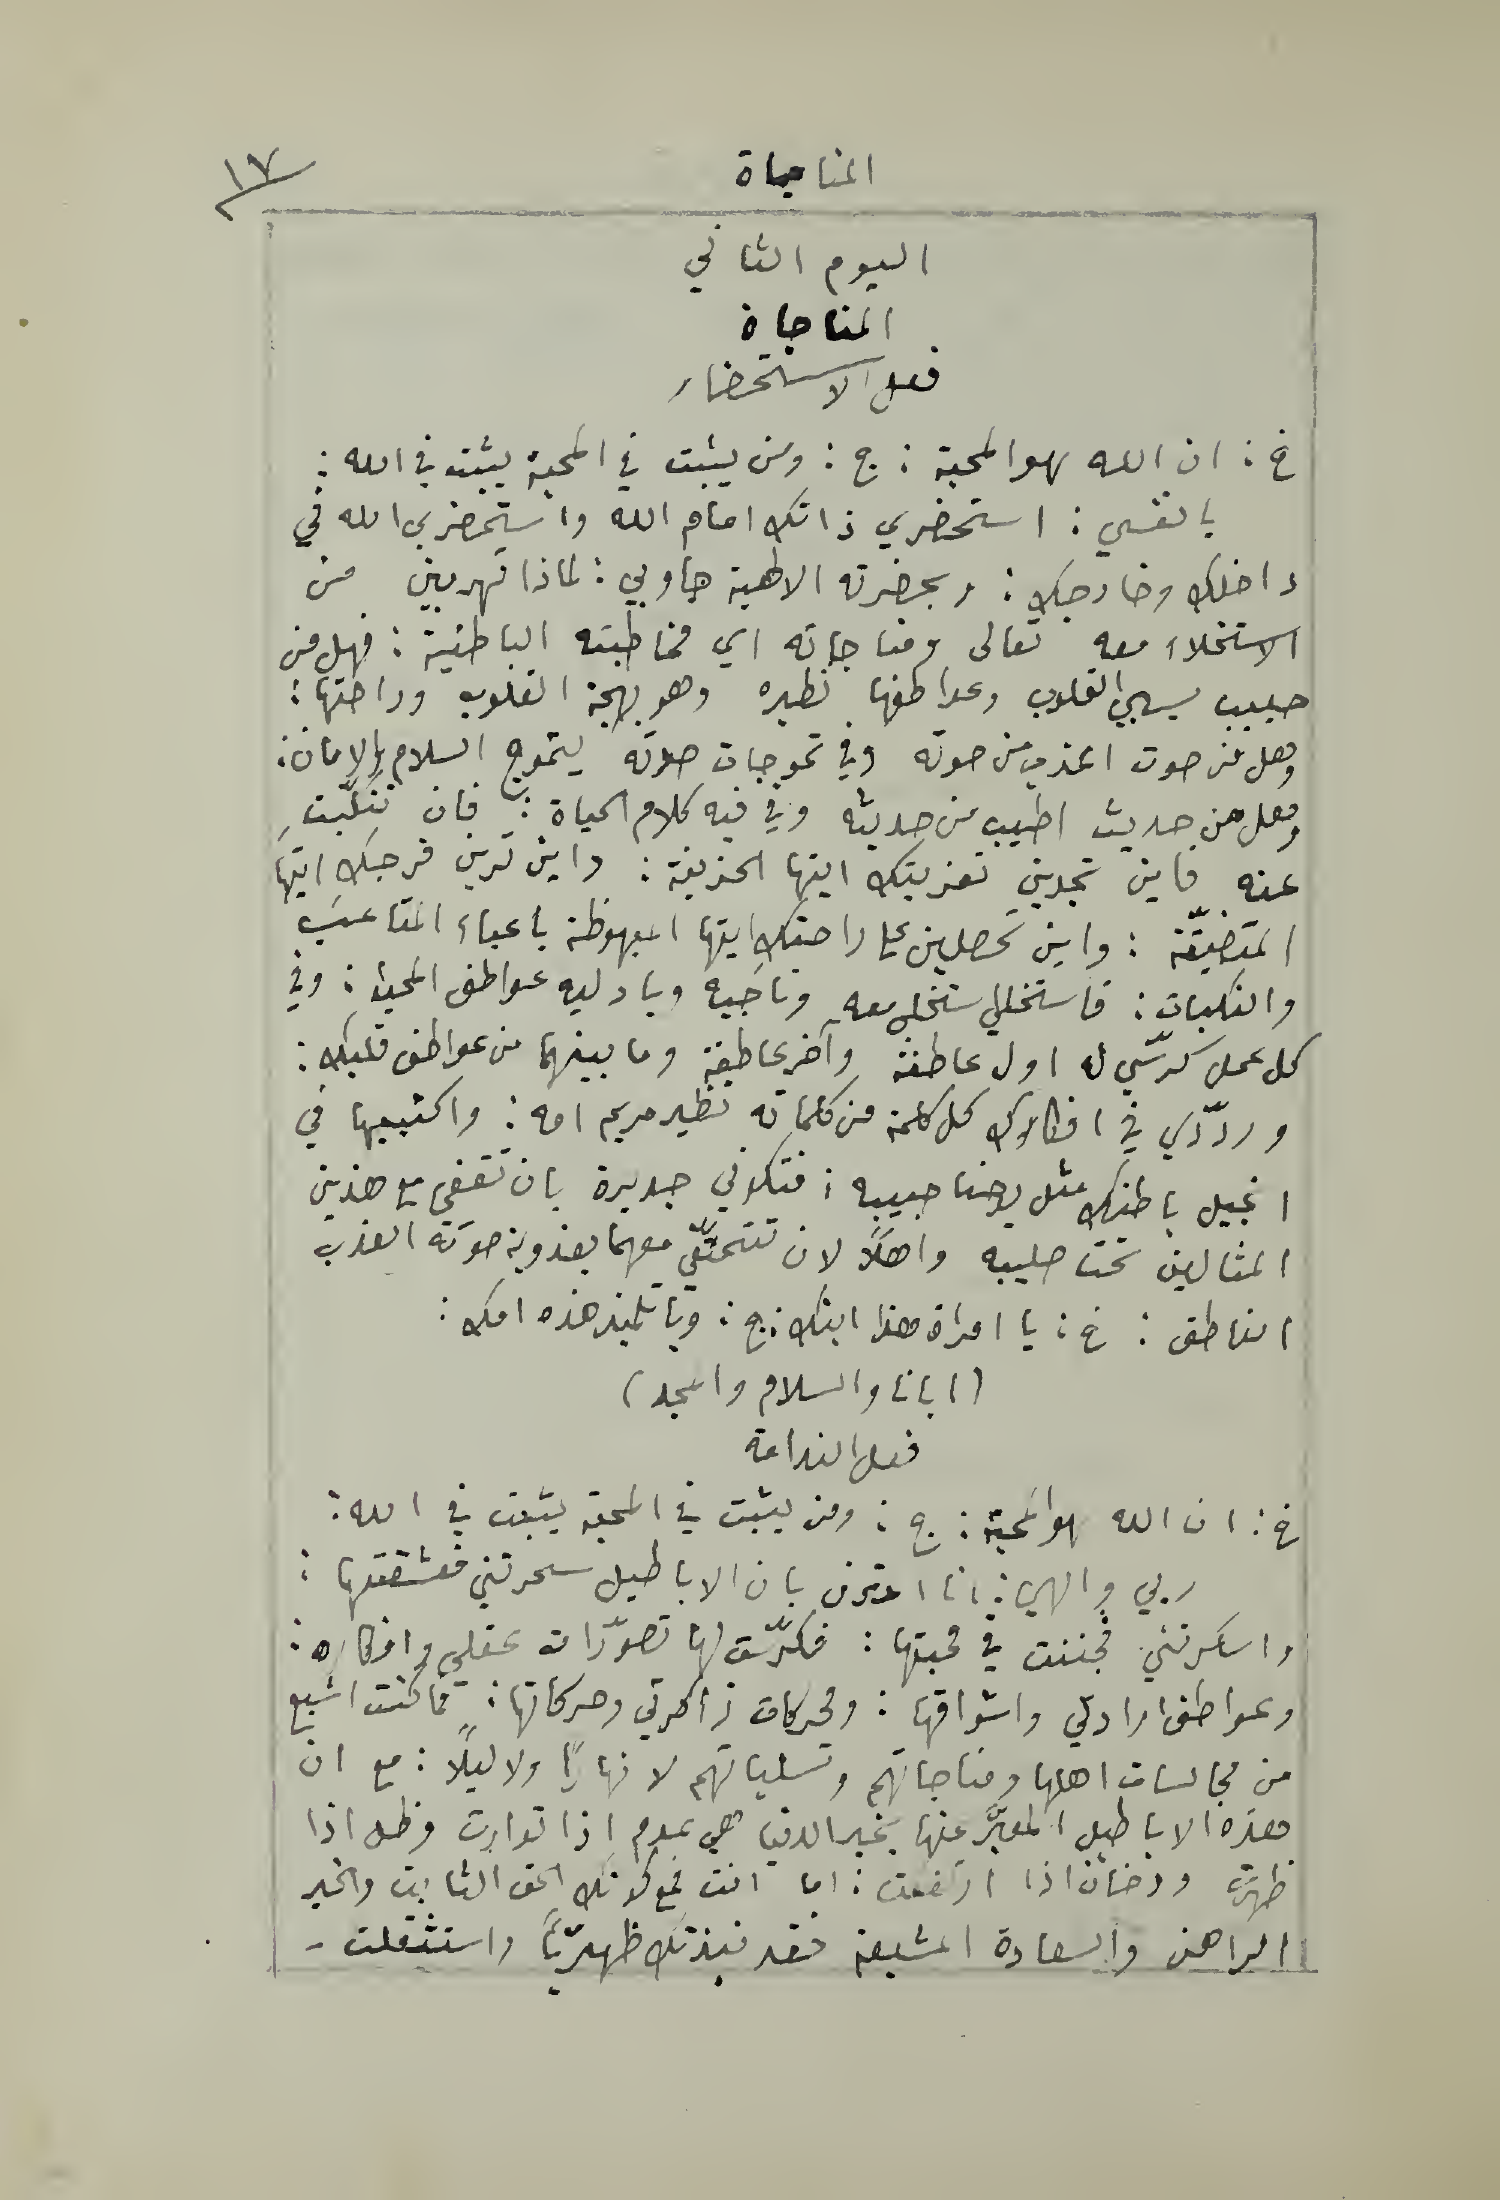 المناجاة
١٧
اليوم الثاني
المناجاة
فعل الاستحضار
خ : ان الله هو المحبة : ج : ومن يثبت في المحبة يثبت في الله :
يا نفسي : استحضري ذاتك امام الله واستحضري الله في
داخلك وخارجك : وبحضرته الالهية جاوبي : لماذا تهربين من
الاستخلاء معه تعالى ومناجاته اي مخاطبته الباطنية : فهل من
حبيب يسبي القلوب وعواطفها نظيره وهو بهجة القلوب وراحتها :
وهل من صوت اعذب من صوته وفي تموجات صوته يتموج السلام والامان :
وهل من حديث اطيب من حديثه وفي فيه كلام الحياة : فان تنكّبتِ
عنه فاين تجدين تعزيتك ايتها الحزينة : واين ترين فرجك ايتها
المتضيّقة : واين تحصلين على راحتك ايتها المبهوظة باعباء المتاعب
والنكبات : فاستخلي ستخلي معه وناجيه وبادليه عواطف المحبة : وفي
كل عمل كرّسي له اول عاطفة وآخر عاطفة وما بينهما من عواطف قلبك :
وردّدي في افكارك كل كلمة من كلماته نظير مريم امه : واكتبيها في
انجيل باطنك مثل يوحنا حبيبه : فتكوني جديرة بان تقفي مع هذين
المثالين تحت صليبه واهلًا لان تتمتّعي معهما بعذوبة صوته العذب
الناطق : خ : يا امراة هذا ابنك : ج : ويا تلميذ هذه امك :
(ابانا والسلام والمجد)
فعل الندامة
خ : ان الله هو المحبة : ج : ومن يثبت في المحبة يثبت في الله :
ربي والهي : انا اعترف بان الاباطيل سحرتني فعشقتها :
واسكرتني فجننت في محبتها : فكرّست لها تصوّرات عقلي وافكاره :
وعواطف ارادتي واشواقها : ومحركات ذاكرتي وحركاتها : فما كنت اشبع
من مجالسات اهلها ومناجاتهم وتسلياتهم لا نهارًا ولا ليلًا : مع ان
هذه الاباطيل المعبَّر عنها بخير الدنيا هي عدم اذا توارت وظل اذا
ظهرت ودخان اذا ارتفعت : اما انت فمع كونك الحق الثابت والخير
الراهن والسعادة المشبعة فقد نبذتك ظهريًّا واستثقلت -